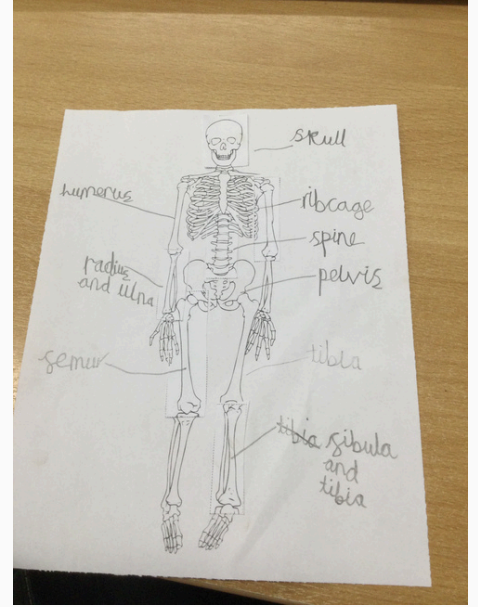 skull
humerus
ribcage
spine
radius
and ulna
pelvis
femur
tibia
tibia fibula
and
tibia